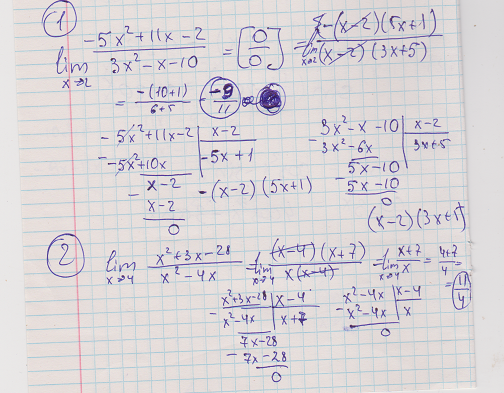 1
lim x→2 (-5x²+11x-2)/(3x²-x-10) = [0/0] = lim x→2 -(x-2)(5x+1)/(x-2)(3x+5)
= -(10+1)/(6+5) = -9/11
-5x²+11x-2 | x-2
-5x²+10x | -5x+1
x-2
x-2
0
-(x-2)(5x+1)
3x²-x-10 | x-2
3x²-6x | 3x+5
5x-10
5x-10
0
(x-2)(3x+5)
2
lim x→4 (x²+3x-28)/(x²-4x) = lim x→4 (x-4)(x+7)/x(x-4) = lim x→4 (x+7)/x = (4+7)/4 = 11/4
x²+3x-28 | x-4
x²-4x | x+7
7x-28
7x-28
0
x²-4x | x-4
x²-4x | x
0